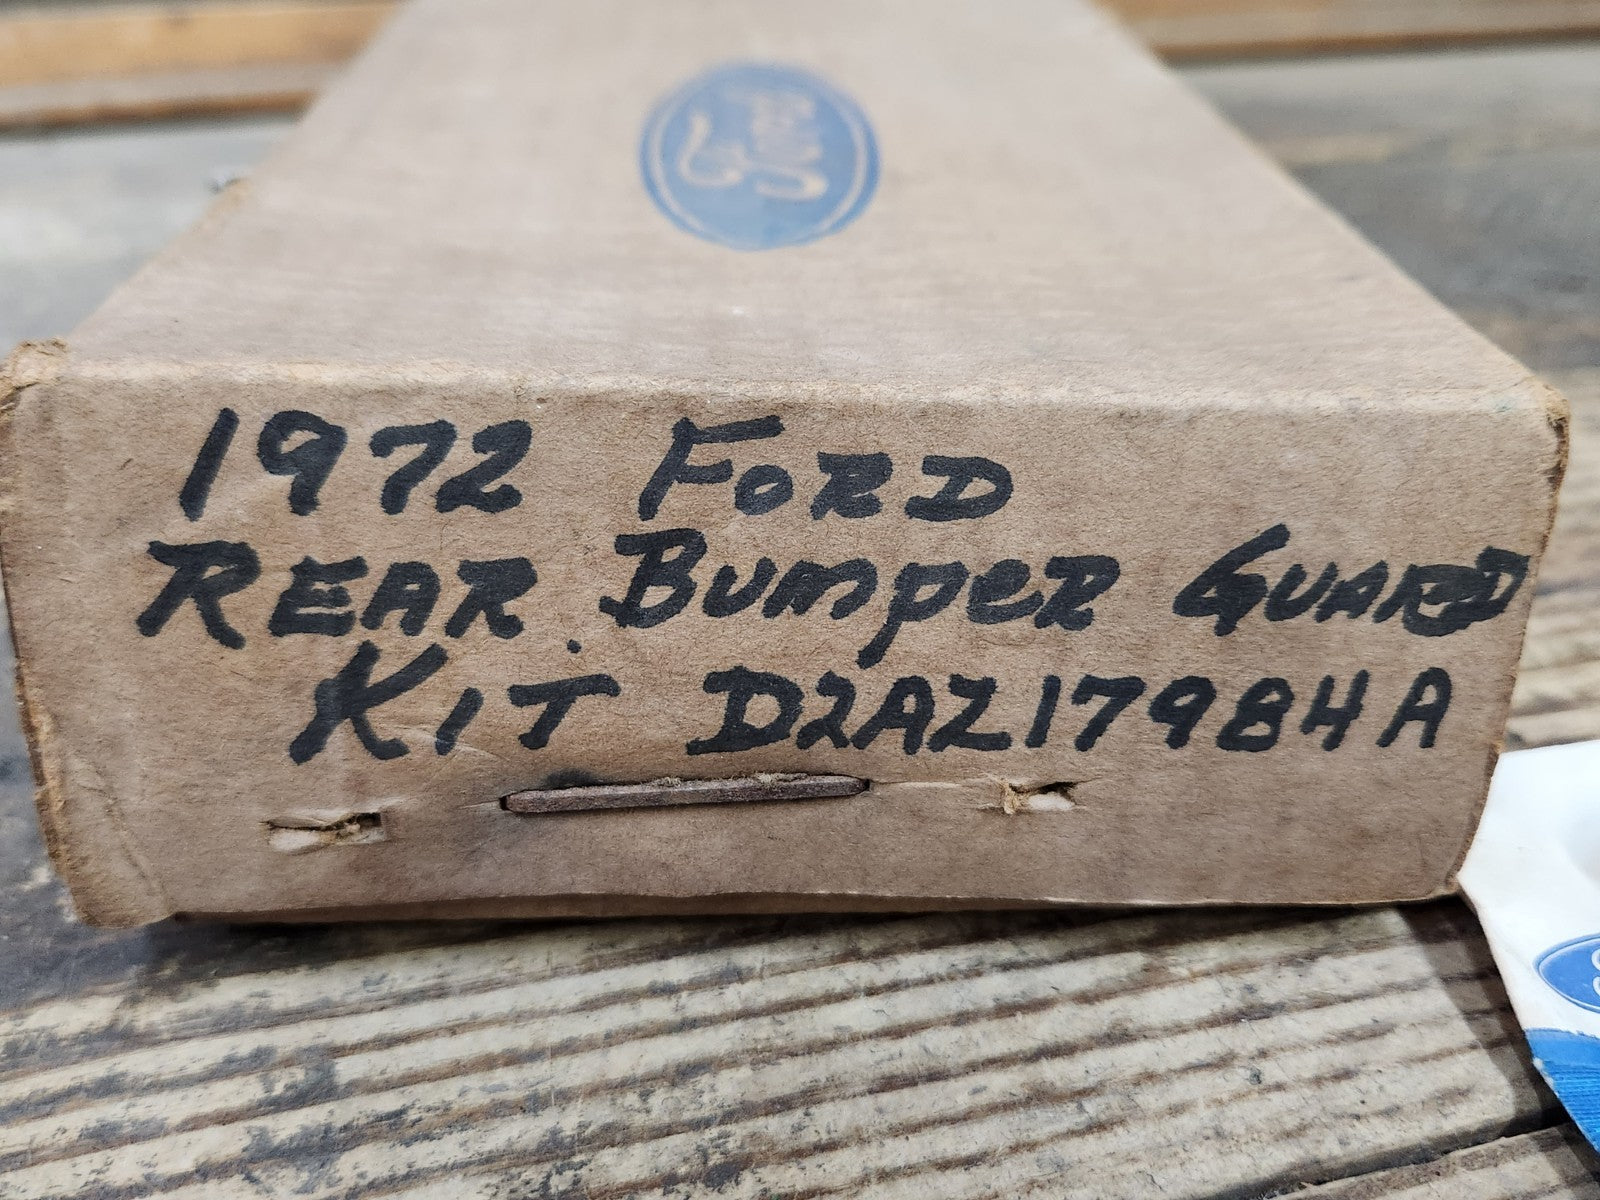 Ford
1972 FORD
REAR BUMPER GUARD
KIT D2AZ17984A